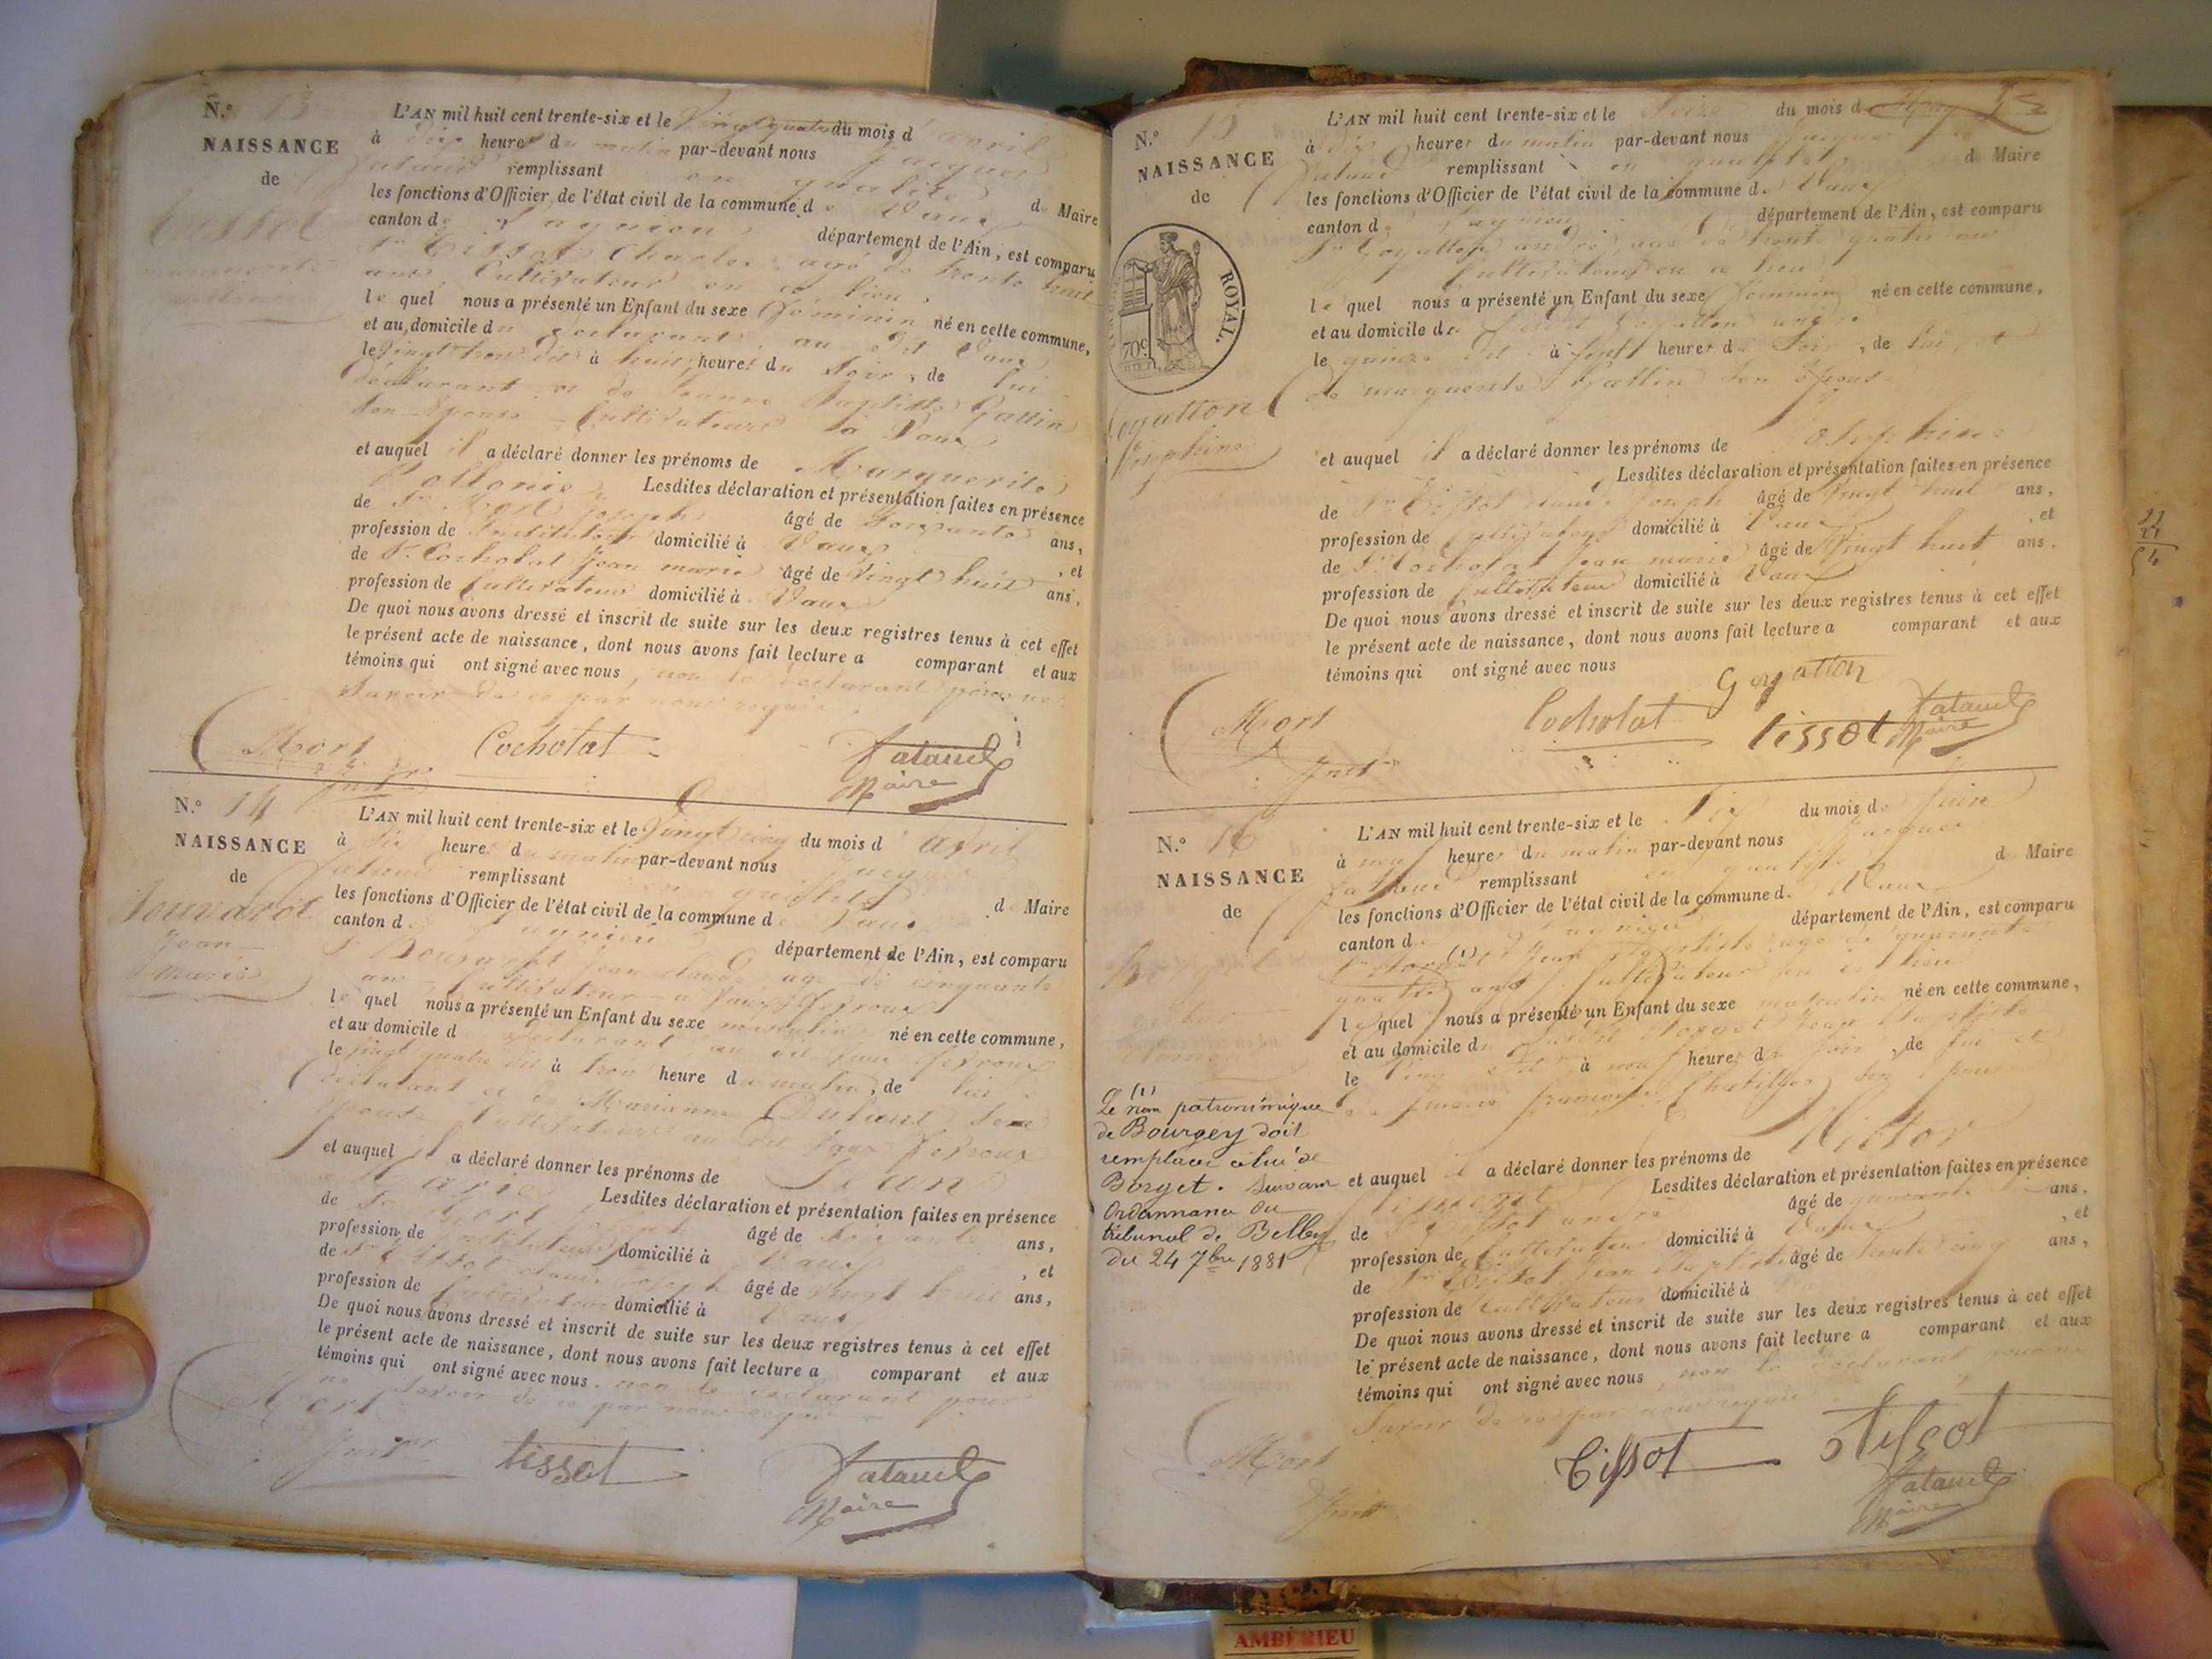 N.º 13
NAISSANCE
de
Tissot
marguerite
L'AN mil huit cent trente-six et le Vingt quatre du mois d'avril
à dix heures du matin par-devant nous Jacques
remplissant en qualité de Maire
les fonctions d'Officier de l'état civil de la commune de Vaux
canton de Lagnieu département de l'Ain, est comparu
Sr Tissot Charles agé de trente huit
ans, Cultivateur en ce lieu,
le quel nous a présenté un Enfant du sexe féminin né en cette commune,
et au domicile du déclarant, au dit Vaux
le Vingt trois dit à huit heures du Soir, de lui
déclarant et de Jeanne Baptiste Gallin
Son Epouse Cultivateurs à Vaux
et auquel il a déclaré donner les prénoms de Marguerite
Pollonie Lesdites déclaration et présentation faites en présence
de Sr Mort Joseph âgé de Soixante ans,
profession de Instituteur domicilié à Vaux, et
de Sr Cocholat Jean marie âgé de Vingt huit ans,
profession de Cultivateur domicilié à Vaux
De quoi nous avons dressé et inscrit de suite sur les deux registres tenus à cet effet
le présent acte de naissance, dont nous avons fait lecture a comparant et aux
témoins qui ont signé avec nous, non le déclarant pour ne
Savoir de ce par nous requis.
Mort Cocholat
Maire
N.º 14
NAISSANCE
de
Bouvaret
Jean
Marie
L'AN mil huit cent trente-six et le Vingt cinq du mois d'avril
à Six heures du matin par-devant nous Jacques
remplissant en qualité de Maire
les fonctions d'Officier de l'état civil de la commune de Vaux
canton de Lagnieu département de l'Ain, est comparu
Sr Bouvaret Jean Claude agé de cinquante
ans Cultivateur à Vaux févroux
le quel nous a présenté un Enfant du sexe masculin né en cette commune,
et au domicile du déclarant, au dit Vaux févroux
le Vingt quatre dit à trois heure du matin, de lui
déclarant et de Marianne Son
Epouse Cultivateurs au dit Vaux févroux
et auquel il a déclaré donner les prénoms de Jean
Marie Lesdites déclaration et présentation faites en présence
de Sr Mort Joseph âgé de Soixante ans,
profession de Instituteur domicilié à Vaux, et
de Sr Tissot claude Joseph âgé de Vingt huit ans,
profession de Cultivateur domicilié à Vaux
De quoi nous avons dressé et inscrit de suite sur les deux registres tenus à cet effet
le présent acte de naissance, dont nous avons fait lecture a comparant et aux
témoins qui ont signé avec nous, non le déclarant pour
ne Savoir de ce par nous requis
Mort tissot
Maire
N.º 15
NAISSANCE
de
ROYAL.
70c
Goyatton
Josephine
L'AN mil huit cent trente-six et le Seize du mois de May
à dix heures du matin par-devant nous Jacques
remplissant en qualité de Maire
les fonctions d'Officier de l'état civil de la commune de Vaux
canton de Lagnieu département de l'Ain, est comparu
Sr Goyatton andré, agé de trente quatre ans
Cultivateur en ce lieu
le quel nous a présenté un Enfant du sexe féminin né en cette commune,
et au domicile du Goyatton andré
le quinze dit à Sept heures du Soir, de lui et
de marguerite Gallin Son Epouse
et auquel il a déclaré donner les prénoms de Josephine
Lesdites déclaration et présentation faites en présence
de Sr Tissot claude Joseph âgé de Vingt huit ans,
profession de Cultivateur domicilié à Vaux, et
de Sr Cocholat Jean marie âgé de Vingt huit ans.
profession de Cultivateur domicilié à Vaux
De quoi nous avons dressé et inscrit de suite sur les deux registres tenus à cet effet
le présent acte de naissance, dont nous avons fait lecture a comparant et aux
témoins qui ont signé avec nous
Goyatton
Mort Cocholat tissot
Maire
N.º 16
NAISSANCE
de
L'AN mil huit cent trente-six et le Six du mois de Juin
à neuf heures du matin par-devant nous Jacques
remplissant en qualité de Maire
les fonctions d'Officier de l'état civil de la commune de Vaux
canton de Lagnieu département de l'Ain, est comparu
Sr Borget (1) Jean Baptiste agé de quarante
quatre ans Cultivateur en ce lieu
le quel nous a présenté un Enfant du sexe masculin né en cette commune,
et au domicile du dit Borget Jean Baptiste
le Cinq dit à neuf heures du Soir, de lui et
de marie françoise Son Epouse
et auquel il a déclaré donner les prénoms de Victor
Lesdites déclaration et présentation faites en présence
de Sr Tissot andré âgé de quarante ans,
profession de Cultivateur domicilié à Vaux, et
de Sr Tissot Jean Baptiste âgé de trente cinq ans,
profession de Cultivateur domicilié à
De quoi nous avons dressé et inscrit de suite sur les deux registres tenus à cet effet
le présent acte de naissance, dont nous avons fait lecture a comparant et aux
témoins qui ont signé avec nous, non le déclarant
Savoir de ce par nous requis
Mort Tissot Tissot
Maire
(1)
Le nom patronimique
de Bourgey doit
remplacer celui de
Borget. Suivant
Ordonnance du
tribunal de Belley
du 24 7bre 1881
AMBÉRIEU